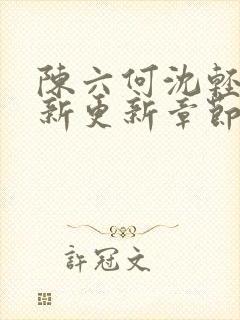 陳六何沈輕
新更新章節
許冠文